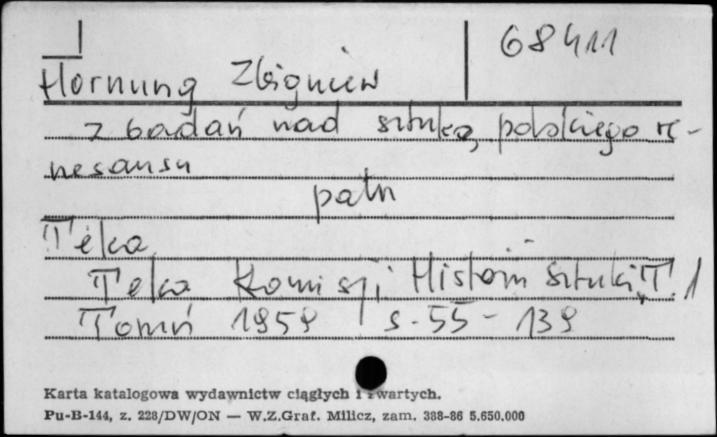 68411
Hornung Zbigniew
z badań nad sztuką polskiego re-
nesansu
patrz
Teka
Teka Komisji Historii Sztuki, T. 1
Toruń 1959 s. 55 - 139
Karta katalogowa wydawnictw ciągłych i zwartych.
Pu-B-144, z. 228/DW/ON — W.Z.Graf. Milicz, zam. 388-86 5.650.000